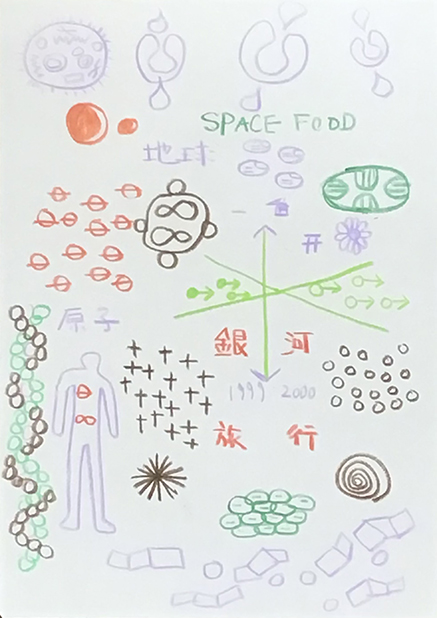 SPACE FOOD
地球
原子
銀河
1999 2000
旅行